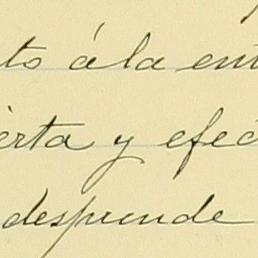 to á la ent
ierta y efec
desprende